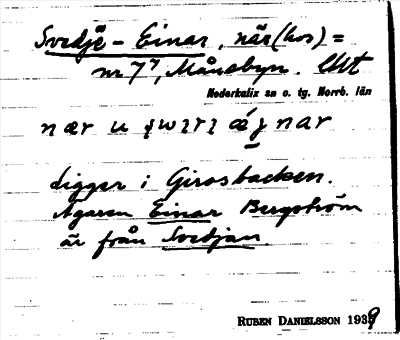 Svedje-Einar, när (hos) =
nr 7⁷, Månsbyn.
Nederkalix sn o. tg. Norrb. län
nær
ligger i Girosbacken.
Ägaren Einar Bergström
är från Svedjan.
RUBEN DANIELSSON 1939